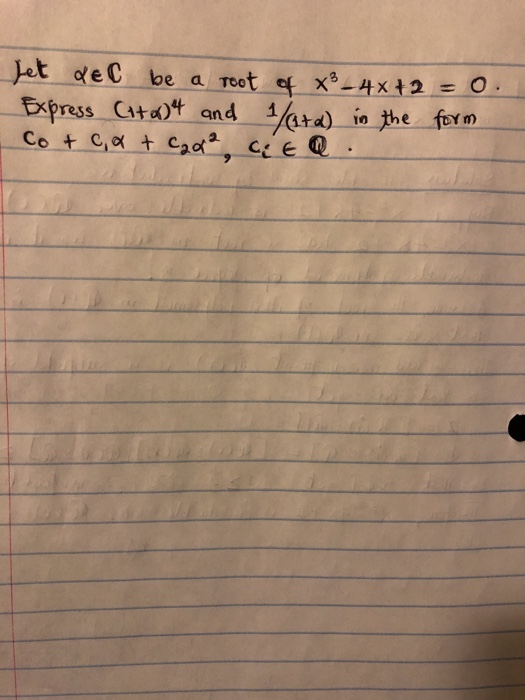 Let α∈C be a root of x³-4x+2 = 0.
Express (1+α)⁴ and 1/(1+α) in the form
C₀ + C₁α + C₂α², Cᵢ ∈ Q.